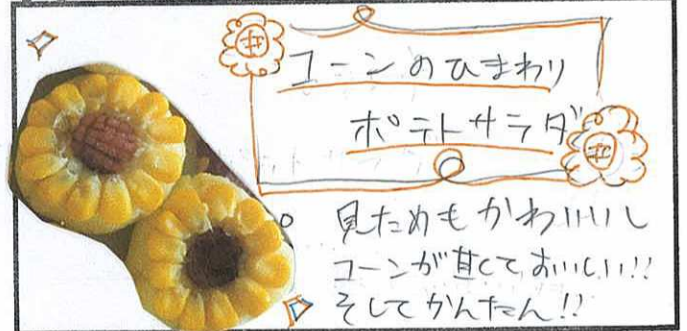 コーンのひまわり
ポテトサラダ
見ためもかわいいし
コーンが甘くておいしい!!
そしてかんたん!!